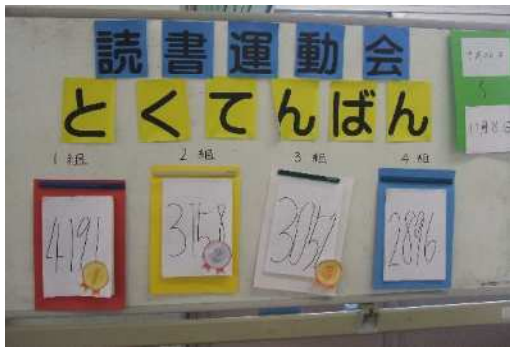 読書運動会
とくてんばん
1組 2組 3組 4組
4191 3758 3052 2896